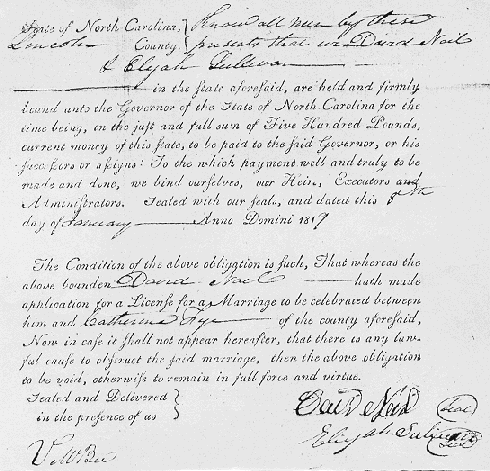 State of North Carolina, Know all men by these
Lincoln County. presents that we David Neil
& Elijah Sullivan
in the state aforesaid, are held and firmly
bound unto the Governor of the State of North Carolina for the
time being, in the just and full sum of Five Hundred Pounds,
current money of this State, to be paid to the said Governor, or his
successors or assigns: To the which payment well and truly to be
made and done, we bind ourselves, our Heirs, Executors and
Administrators. Sealed with our seals, and dated this
day of January Anno Domini 181
The Condition of the above obligation is such, That whereas the
above bounden David Neil hath made
application for a License for a Marriage to be celebrated between
him and Catherine of the county aforesaid,
Now in case it shall not appear hereafter, that there is any law-
ful cause to obstruct the said marriage, then the above obligation
to be void, otherwise to remain in full force and virtue.
Sealed and Delivered
in the presence of us
David Neil Seal
Elijah Sullivan Seal